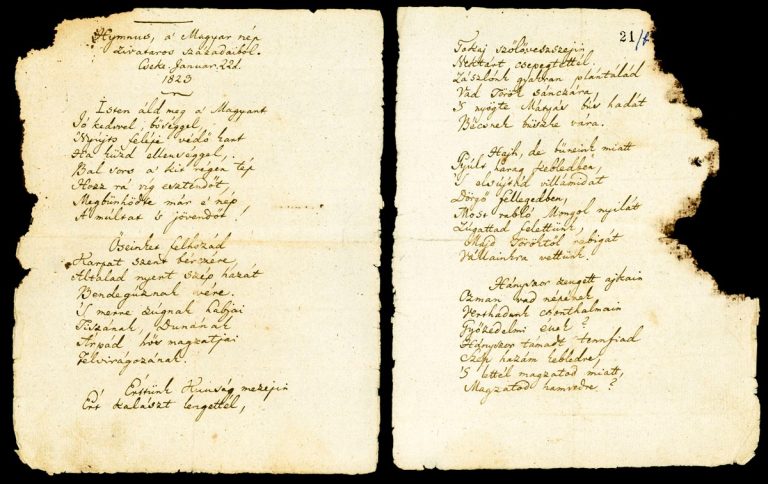 Hymnus, a' Magyar nép
zivataros századaiból.
Cseke. Januar. 22d.
1823
Isten áld meg a' Magyart
Jó kedvvel, bőséggel,
Nyújts feléje védő kart
Ha küzd ellenséggel,
Bal sors a' kit régen tép
Hozz rá víg esztendőt,
Megbűnhödte már e' nép
A' múltat 's jövendőt!
Őseinket felhozád
Kárpát szent bérczére,
Általad nyert szép hazát
Bendegúznak vére.
'S merre zúgnak habjai
Tiszának, Dunának,
Árpád hős magzatjai
Felvirágozának.
Értünk Kunság mezején
Ért kalászt lengettél,
21/b
Tokaj szőlővesszejin
Nektárt csepegtettél.
Zászlónk gyakran plántálád
Vad Török sánczára,
'S nyögte Mátyás bús hadát
Bécsnek büszke vára.
Hajh, de bűneink miatt
Gyúlt harag kebledben,
'S elsújtád villámidat
Dörgő fellegedben,
Most rabló Mongol nyilát
Zúgattad felettünk,
Majd Töröktől rabigát
Vállainkra vettünk.
Hányszor zengett ajkain
Ozman vad népének
Vert hadunk csonthalmain
Győzedelmi ének?
Hányszor támadt tennfiad
Szép hazám kebledre,
'S lettél magzatod miatt,
Magzatod hamvedre?